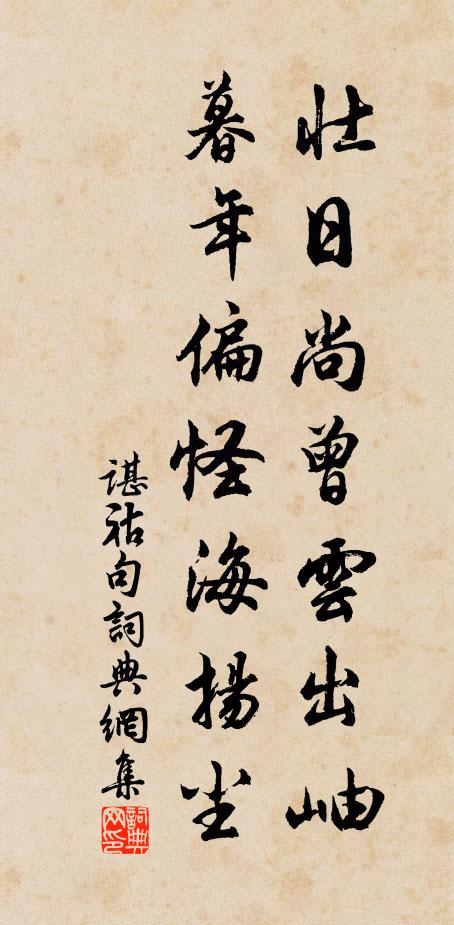 壯日尚曾雲出岫
暮年偏怪海揚尘
谌祜句詞典網集
詞典网印